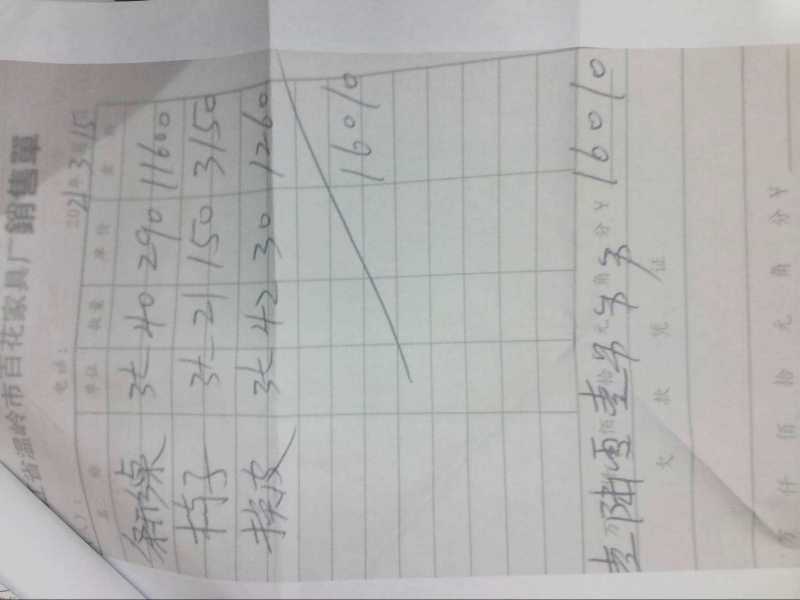 省温岭市百花家具厂銷售單
电话: 2021年3月15日
名 称 单位 数量 单价 金 额
条形桌 张 40 290 11600
椅子 张 21 150 3150
换皮 张 42 30 1260
16010
壹万陆仟佰壹拾元角分¥ 16010
欠 款 凭 证
万 仟 佰 拾 元 角 分 ¥